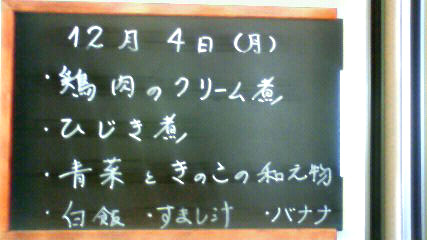 12月4日(月)
・鶏肉のクリーム煮
・ひじき煮
・青菜ときのこの和え物
・白飯 ・すまし汁 ・バナナ